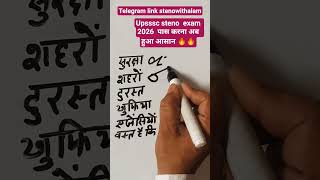 Telegram link stenowithalam
Upsssc steno exam
2026 पास करना अब
हुआ आसान 🔥🔥
सुरक्षा
शहरों
दुरस्त
खुफिया
एजेंसियों
वस्त है कि